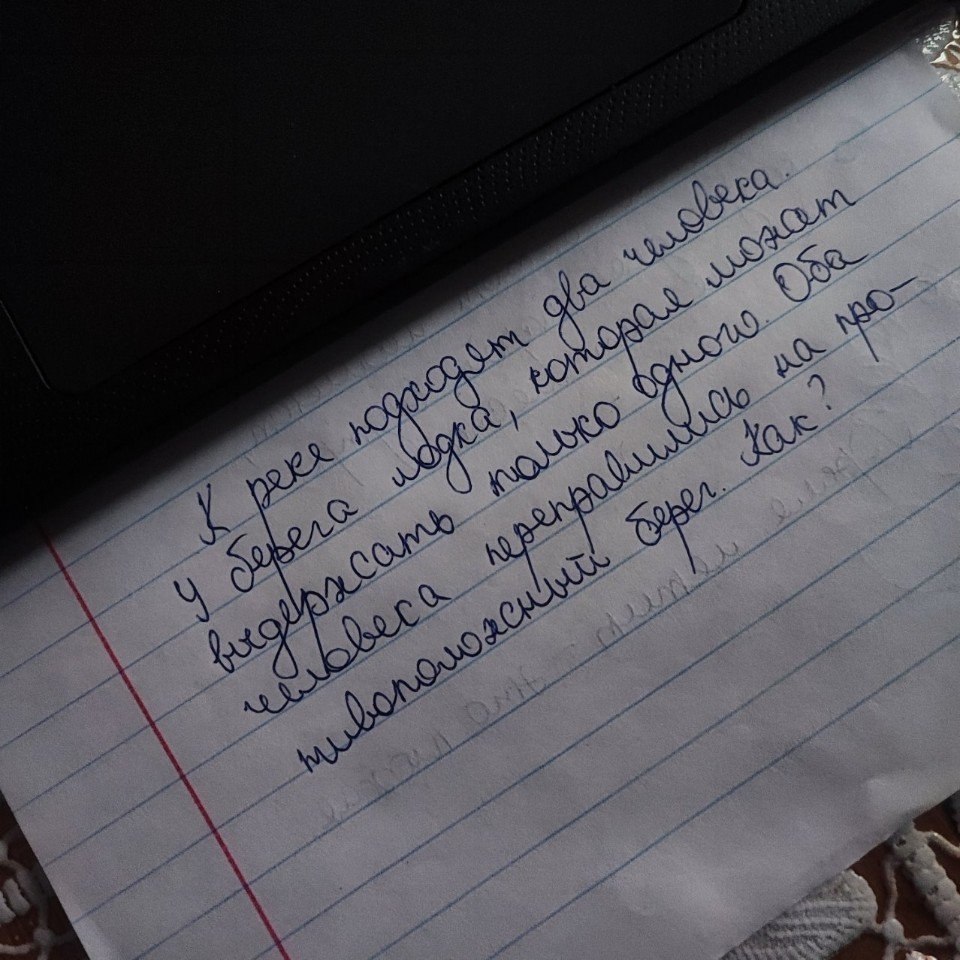 К реке подходят два человека.
У берега лодка, которая может
выдержать только одного. Оба
человека переправились на про-
тивоположный берег. Как?